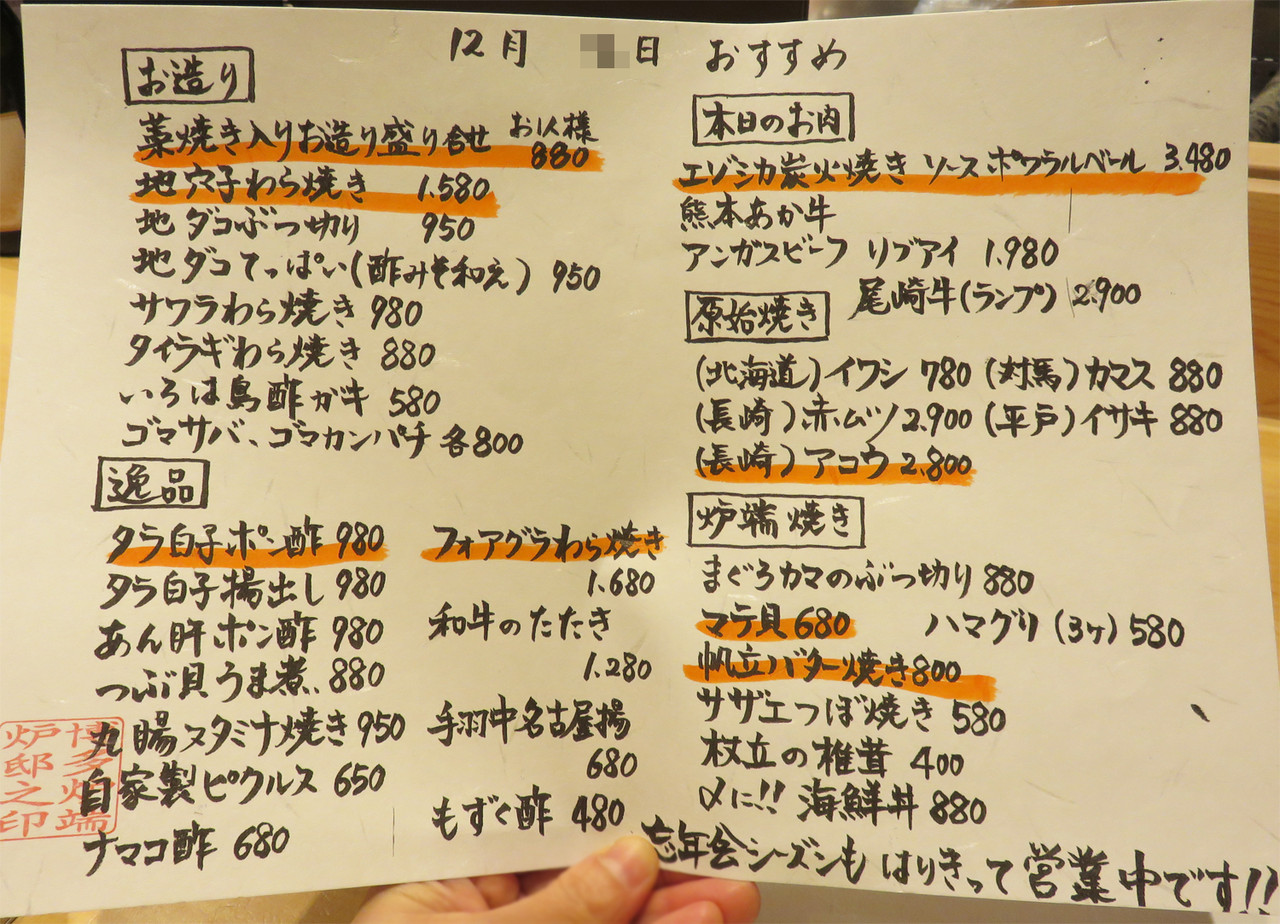 12月 日 おすすめ
お造り
藁焼き入りお造り盛り合せ お1人様 880
地穴子わら焼き 1.580
地ダコぶつ切り 950
地ダコてっぱい(酢みそ和え) 950
サワラわら焼き 980
タイラギわら焼き 880
いろは島酢ガキ 580
ゴマサバ、ゴマカンパチ 各800
逸品
タラ白子ポン酢 980
タラ白子揚出し 980
あん肝ポン酢 980
つぶ貝うま煮 880
丸腸スタミナ焼き 950
自家製ピクルス 650
ナマコ酢 680
フォアグラわら焼き
1.680
和牛のたたき
1.280
手羽中名古屋揚
680
もずく酢 480
本日のお肉
エゾシカ炭火焼き ソースポワヴラルベール 3.480
熊本あか牛
アンガスビーフ リブアイ 1.980
尾崎牛(ランプ) 2.900
原始焼き
(北海道)イワシ 780 (対馬)カマス 880
(長崎)赤ムツ 2.900 (平戸)イサキ 880
(長崎)アコウ 2.800
炉端焼き
まぐろカマのぶつ切り 880
マテ貝 680 ハマグリ(3ヶ) 580
帆立バター焼き 800
サザエつぼ焼き 580
杖立の椎茸 400
〆に!! 海鮮丼 880
忘年会シーズンも はりきって営業中です!!
博多炉端
炉邸之印